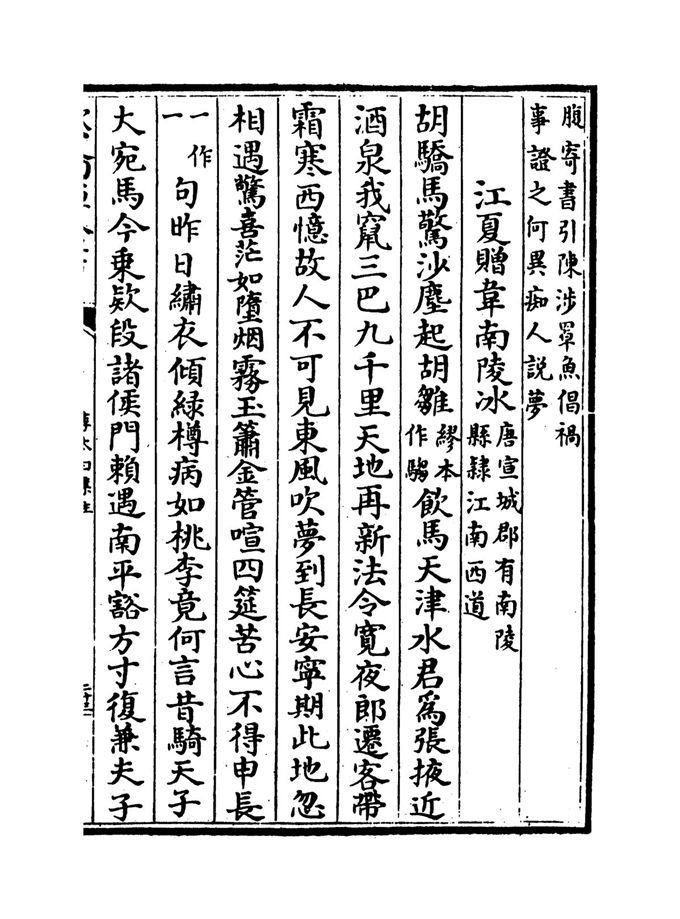 腹寄書引陳涉罩魚倡禍
事證之何異痴人説夢
江夏贈韋南陵冰唐宣城郡有南陵
縣隸江南西道
胡驕馬驚沙塵起胡雛繆本
作騶飲馬天津水君爲張掖近
酒泉我竄三巴九千里天地再新法令寛夜郎遷客帶
霜寒西憶故人不可見東風吹夢到長安寧期此地忽
相遇驚喜茫如墮烟霧玉簫金管喧四筵苦心不得申長
一作
一句昨日繡衣傾緑樽病如桃李竟何言昔騎天子
大宛馬今乗欵段諸侯門賴遇南平豁方寸復兼夫子
李太白集注